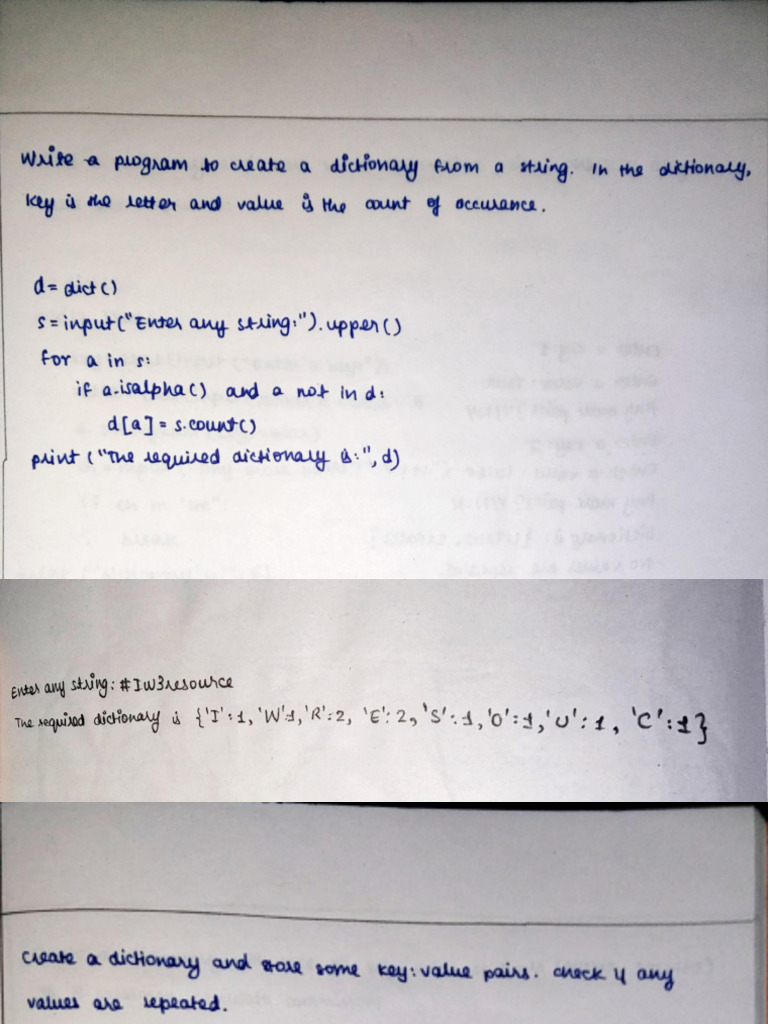 Write a program to create a dictionary from a string. In the dictionary,
key is the letter and value is the count of occurance.
d = dict()
s = input("Enter any string:").upper()
for a in s:
if a.isalpha() and a not in d:
d[a] = s.count()
print ("The required dictionary is:", d)
Enter any string: #Iw3resource
The required dictionary is {'I':1, 'W':1, 'R':2, 'E':2, 'S':1, 'O':1, 'U':1, 'C':1}
Create a dictionary and store some key: value pairs. check if any
values are repeated.